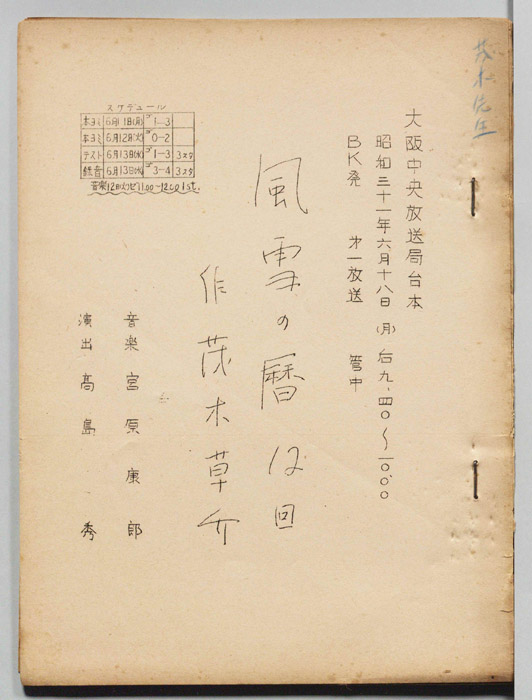 茂木先生
大阪中央放送局台本
昭和三十一年六月十八日(月)后九.四〇〜一〇.〇〇
BK発 才一放送 管中
風雪の暦 12回
作 茂木草介
音楽 宮原康郎
演出 高島秀
スケヂュール
本ヨミ 6月11日(月) ゴ1-3
本ヨミ 6月12日(火) 0-2
テスト 6月13日(水) ゴ1-3 3スタ
録音 6月13日(水) ゴ3-4 3スタ
音楽12日(火)ゼ11.00-12.00 1st.